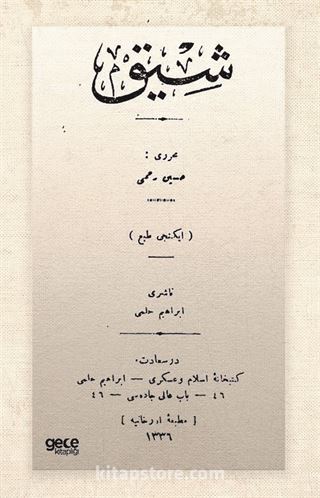 شيق
محرری :
حسين رحمی
( ايكنجی طبع )
ناشری
ابراهيم حلمی
در سعادت
كتبخانهٔ اسلام وعسكری — ابراهيم حلمی
٤٦ — باب عالی جاده‌سی — ٤٦
[ مطبعهٔ اورخانيه ]
١٣٣٦
gece
kitaplığı
kitapstore.com